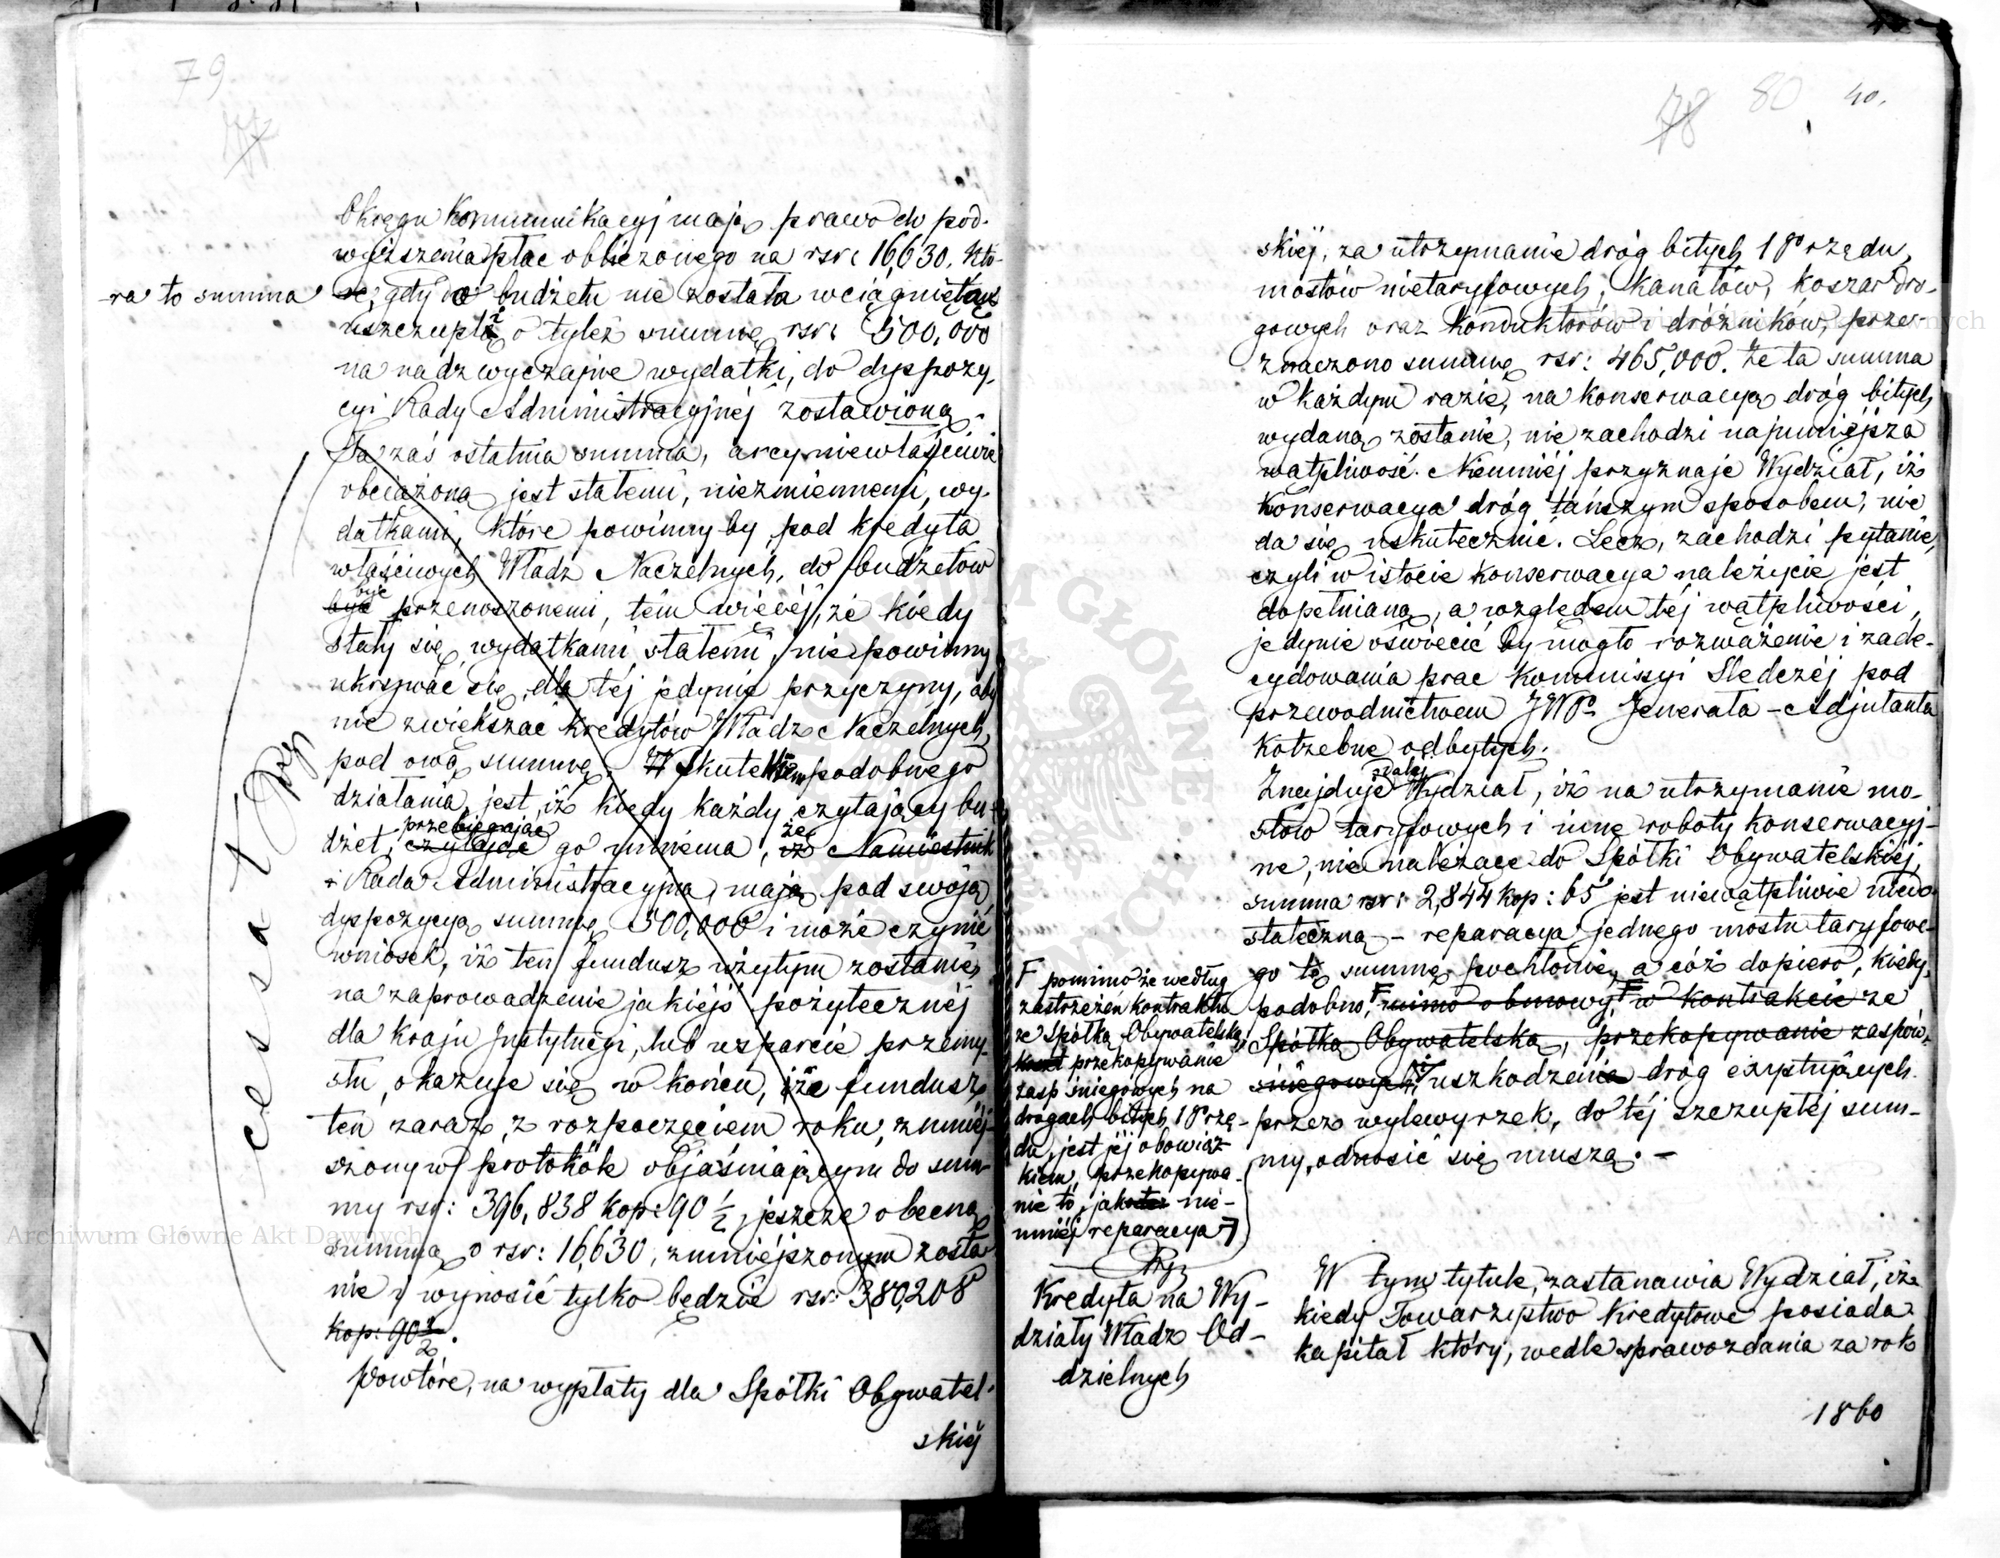 79
77
Okręgu Kommunikacyj mają prawo do pod-
wyższenia płac obliczonego na rsr: 16,630. Któ-
ra to summa
re, gdy w budżetu nie została wciągniętą
uszczupli o tyleż summę rsr: 500,000
na nadzwyczajne wydatki, do dyspozy-
cyi Rady Administracyjnéj zostawioną.
Ta zaś ostatnia summa, arcyniewłaściwie
obciążoną jest stałemi, niezmiennemi, wy-
datkami, które powinny by pod kredyta
właściwych Władz Naczelnych, do budżetów
być
być przenoszonemi, tém więcéj, że kiedy
stały się wydatkami stałemi, nie powinny
ukrywać się, dla téj jedynie przyczyny, aby
nie zwiększać kredytów Władz Naczelnych,
pod ową summę. Skutkiem podobnego
działania, jest, iż kiedy każdy czytający bu-
dżet, przebiegając
czytając go mniema, że
iż Namiestnik
i Rada Administracyjna, mają pod swoją
dyspozycyą summę 500,000 i może czynić
wniosek, iż ten fundusz użytym zostanie
na zaprowadzenie jakiéjś pożytecznéj
dla kraju Instytucyi, lub wsparcie przemy-
słu, okazuje się w końcu, że fundusz
ten zaraz, z rozpoczęciem roku, zmniéj-
szony w protokóle objaśniającym do sum-
my rsr: 396,838 kop: 90 1/2, jeszcze obecną
summą o rsr: 16,630, zmniéjszonym zosta-
nie i wynosić tylko będzie rsr: 380,208
kop: 90 1/2.
cessat
Powtóre, na wypłaty dla Spółki Obywatel-
skiéj
78 80 40.
skiéj, za utrzymanie dróg bitych 1go rzędu,
mostów nietaryfowych, Kanałów, koszar dro-
gowych oraz Konduktorów i dróżników, prze-
znaczono summę rsr: 465,000. Że ta summa
w każdym razie, na konserwacyą dróg bitych
wydaną zostanie, nie zachodzi najmniejsza
wątpliwość. Niemniéj przyznaje Wydział, iż
konserwacya dróg tańszym sposobem, nie
da się uskutecznić. Lecz, zachodzi pytanie,
czyli w istocie konserwacya należycie jest
dopełnianą, a względem téj wątpliwości,
jedynie oświecić by mogło rozważenie i zade-
cydowania prac Kommissyi Śledczéj pod
przewodnictwem JWgo Jenerała-Adjutanta
Kotzebue odbytych.
Znajduje daléj Wydział, iż na utrzymanie mo-
stów taryfowych i inne roboty konserwacyj-
ne, nie należące do Spółki Obywatelskiéj,
summa rsr: 2,844 kop: 65 jest niewątpliwie niedo-
stateczną - reparacya jednego mostu taryfowe-
go tę summę pochłonie, a cóż dopiero, kiedy,
podobno, F mimo obmowy, F w kontrakcie ze
Spółką Obywatelską, przekopywanie zasp
śniegowych, uszkodzenia dróg exystujących
przez wylewy rzek, do téj szczupłéj sum-
my, odnosić się muszą. -
F pomimo że według
zastrzeżen kontraktu
ze Spółką Obywatelską,
koszt przekopywanie
zasp śniegowych na
drogach bitych 1go rzę-
du, jest jéj obowiąz-
kiem, przekopywa-
nie to, jakoteż nie-
mniéj reparacya
Kredyta na Wy-
działy Władz Od-
dzielnych
W tym tytule, zastanawia Wydział, iż
kiedy Towarzystwo Kredytowe posiada
kapitał który, wedle sprawozdania za rok
1860
Archiwum Główne Akt Dawnych
Archiwum Główne Akt Dawnych